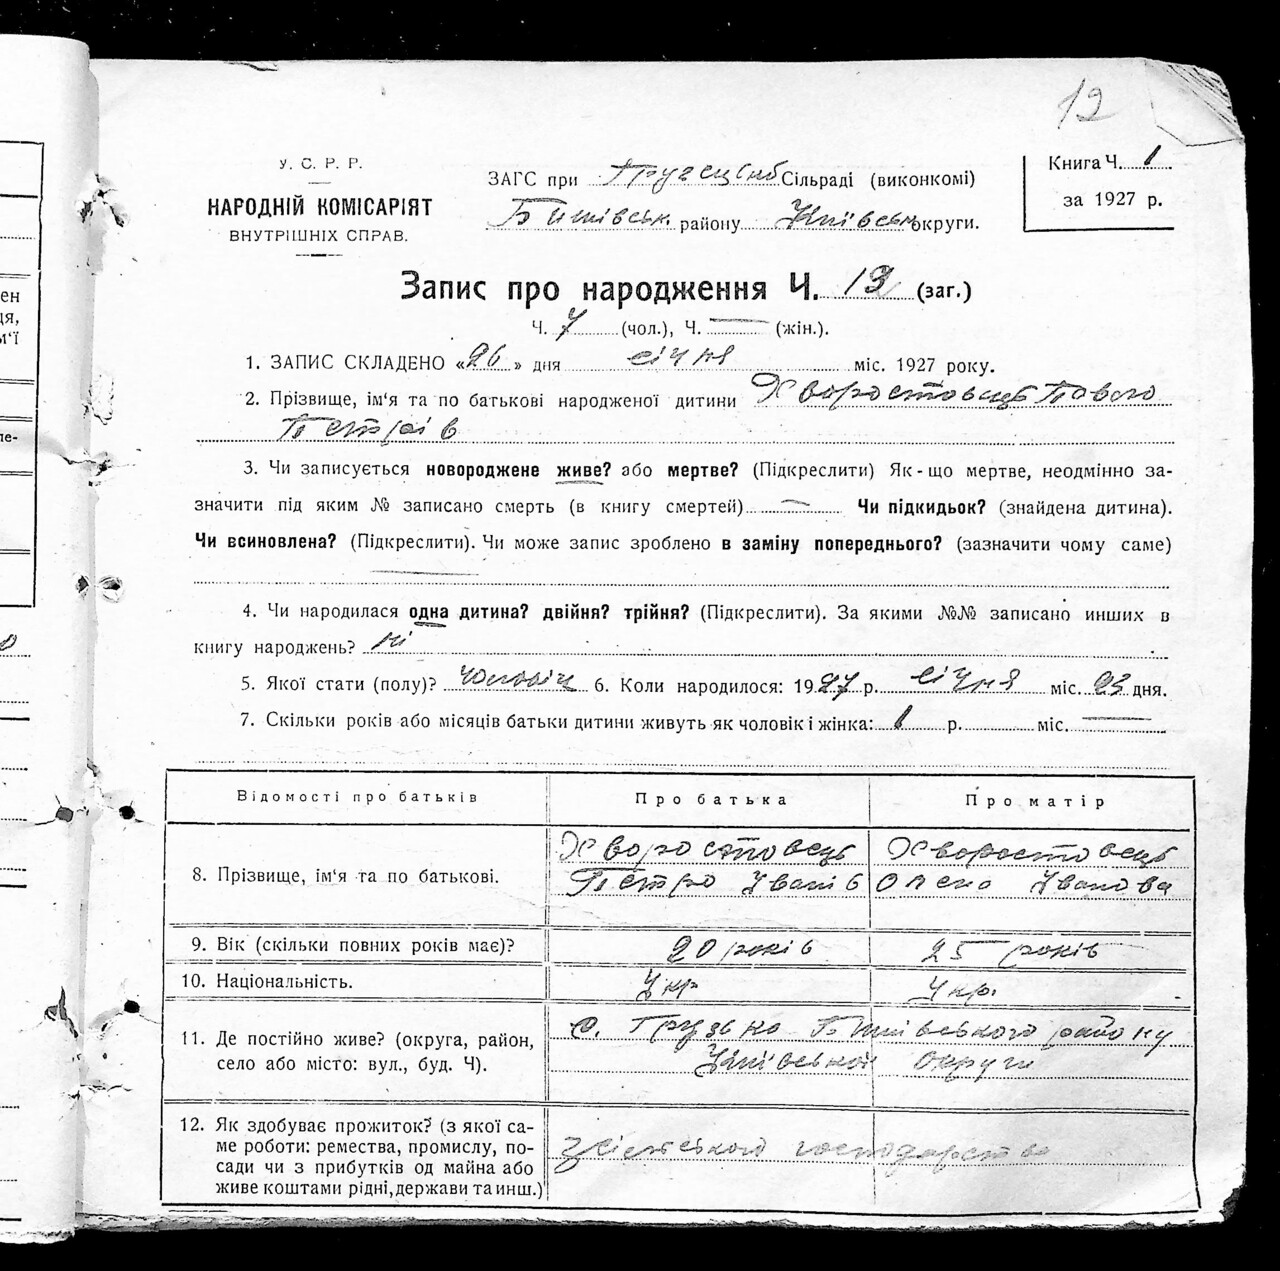 12
У. С. Р. Р.
НАРОДНІЙ КОМІСАРІЯТ
ВНУТРІШНІХ СПРАВ.
ЗАГС при Сільраді (виконкомі)
Бишівськ району Київськ округи.
Книга Ч. 1
за 1927 р.
Запис про народження Ч. 19 (заг.)
Ч. 7 (чол.), Ч. — (жін.).
1. ЗАПИС СКЛАДЕНО «26» дня січня міс. 1927 року.
2. Прізвище, ім'я та по батькові народженої дитини Хворостовець Павло
Петрів
3. Чи записується новороджене живе? або мертве? (Підкреслити) Як-що мертве, неодмінно за-
значити під яким № записано смерть (в книгу смертей) — Чи підкидьок? (знайдена дитина).
Чи всиновлена? (Підкреслити). Чи може запис зроблено в заміну попереднього? (зазначити чому саме)
4. Чи народилася одна дитина? двійня? трійня? (Підкреслити). За якими №№ записано инших в
книгу народжень? ні
5. Якої стати (полу)? чоловіч 6. Коли народилося: 1927 р. січня міс. 23 дня.
7. Скільки років або місяців батьки дитини живуть як чоловік і жінка: 1 р. міс. —
Відомості про батьків Про батька Про матір
8. Прізвище, ім'я та по батькові. Хворостовець Петро Іванів Хворостовець Олена Іванова
9. Вік (скільки повних років має)? 20 років 25 років
10. Національність. Укр Укр.
11. Де постійно живе? (округа, район,
село або місто: вул., буд. Ч). с. Грузько Бишівського району
Київської округи
12. Як здобуває прожиток? (з якої са-
ме роботи: ремества, промислу, по-
сади чи з прибутків од майна або
живе коштами рідні, держави та инш.) з сільського господарства
ен
ця,
м'ї
ле-